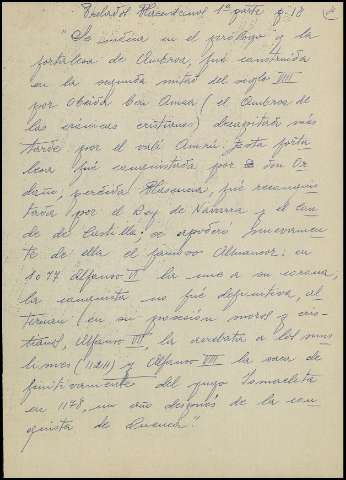 Prelados Placentinos 1ª parte p. 18
"Se indica en el prólogo y la
fortaleza de Ambroa, fué construida
en la segunda mitad del siglo VIII
por Obeida ben Amsa (el Ambroa de
las crónicas cristianas) decapitado más
tarde por el valí Amrú. Esta forta
leza fué conquistada por don Or
doño; perdida Placencia, fué reconquis
tada por el Rey de Navarra y el Con
de de Castilla; se apoderó nuevamen
te de ella el famoso Almanzor: en
1077 Alfonso VI la une a su corona,
la conquista no fué definitiva, al
ternan (en su posesión moros y cris-
tianos, Alfonso VII, la arrebata a los mus
limes (1211) y Alfonso VIII la saca de
finitivamente del yugo Ismaelita
en 1178, un año después de la con
quista de Cuenca".